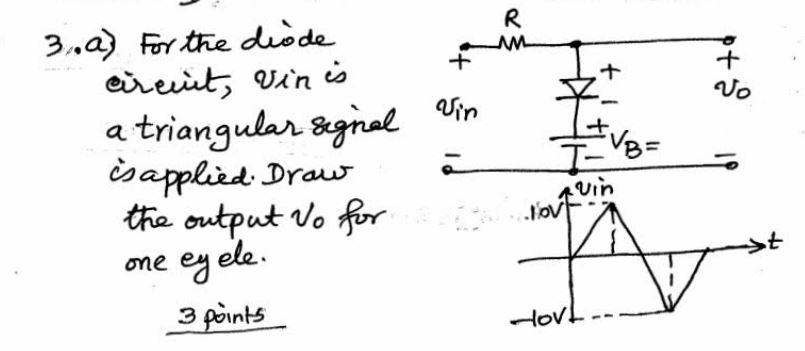 3.a) For the diode
circuit, Vin is
a triangular signal
is applied. Draw
the output Vo for
one cycle.
3 points
R
+
+
+
Vin
-
Vo
+
VB=
-
-
-
Vin
10V
t
-10V